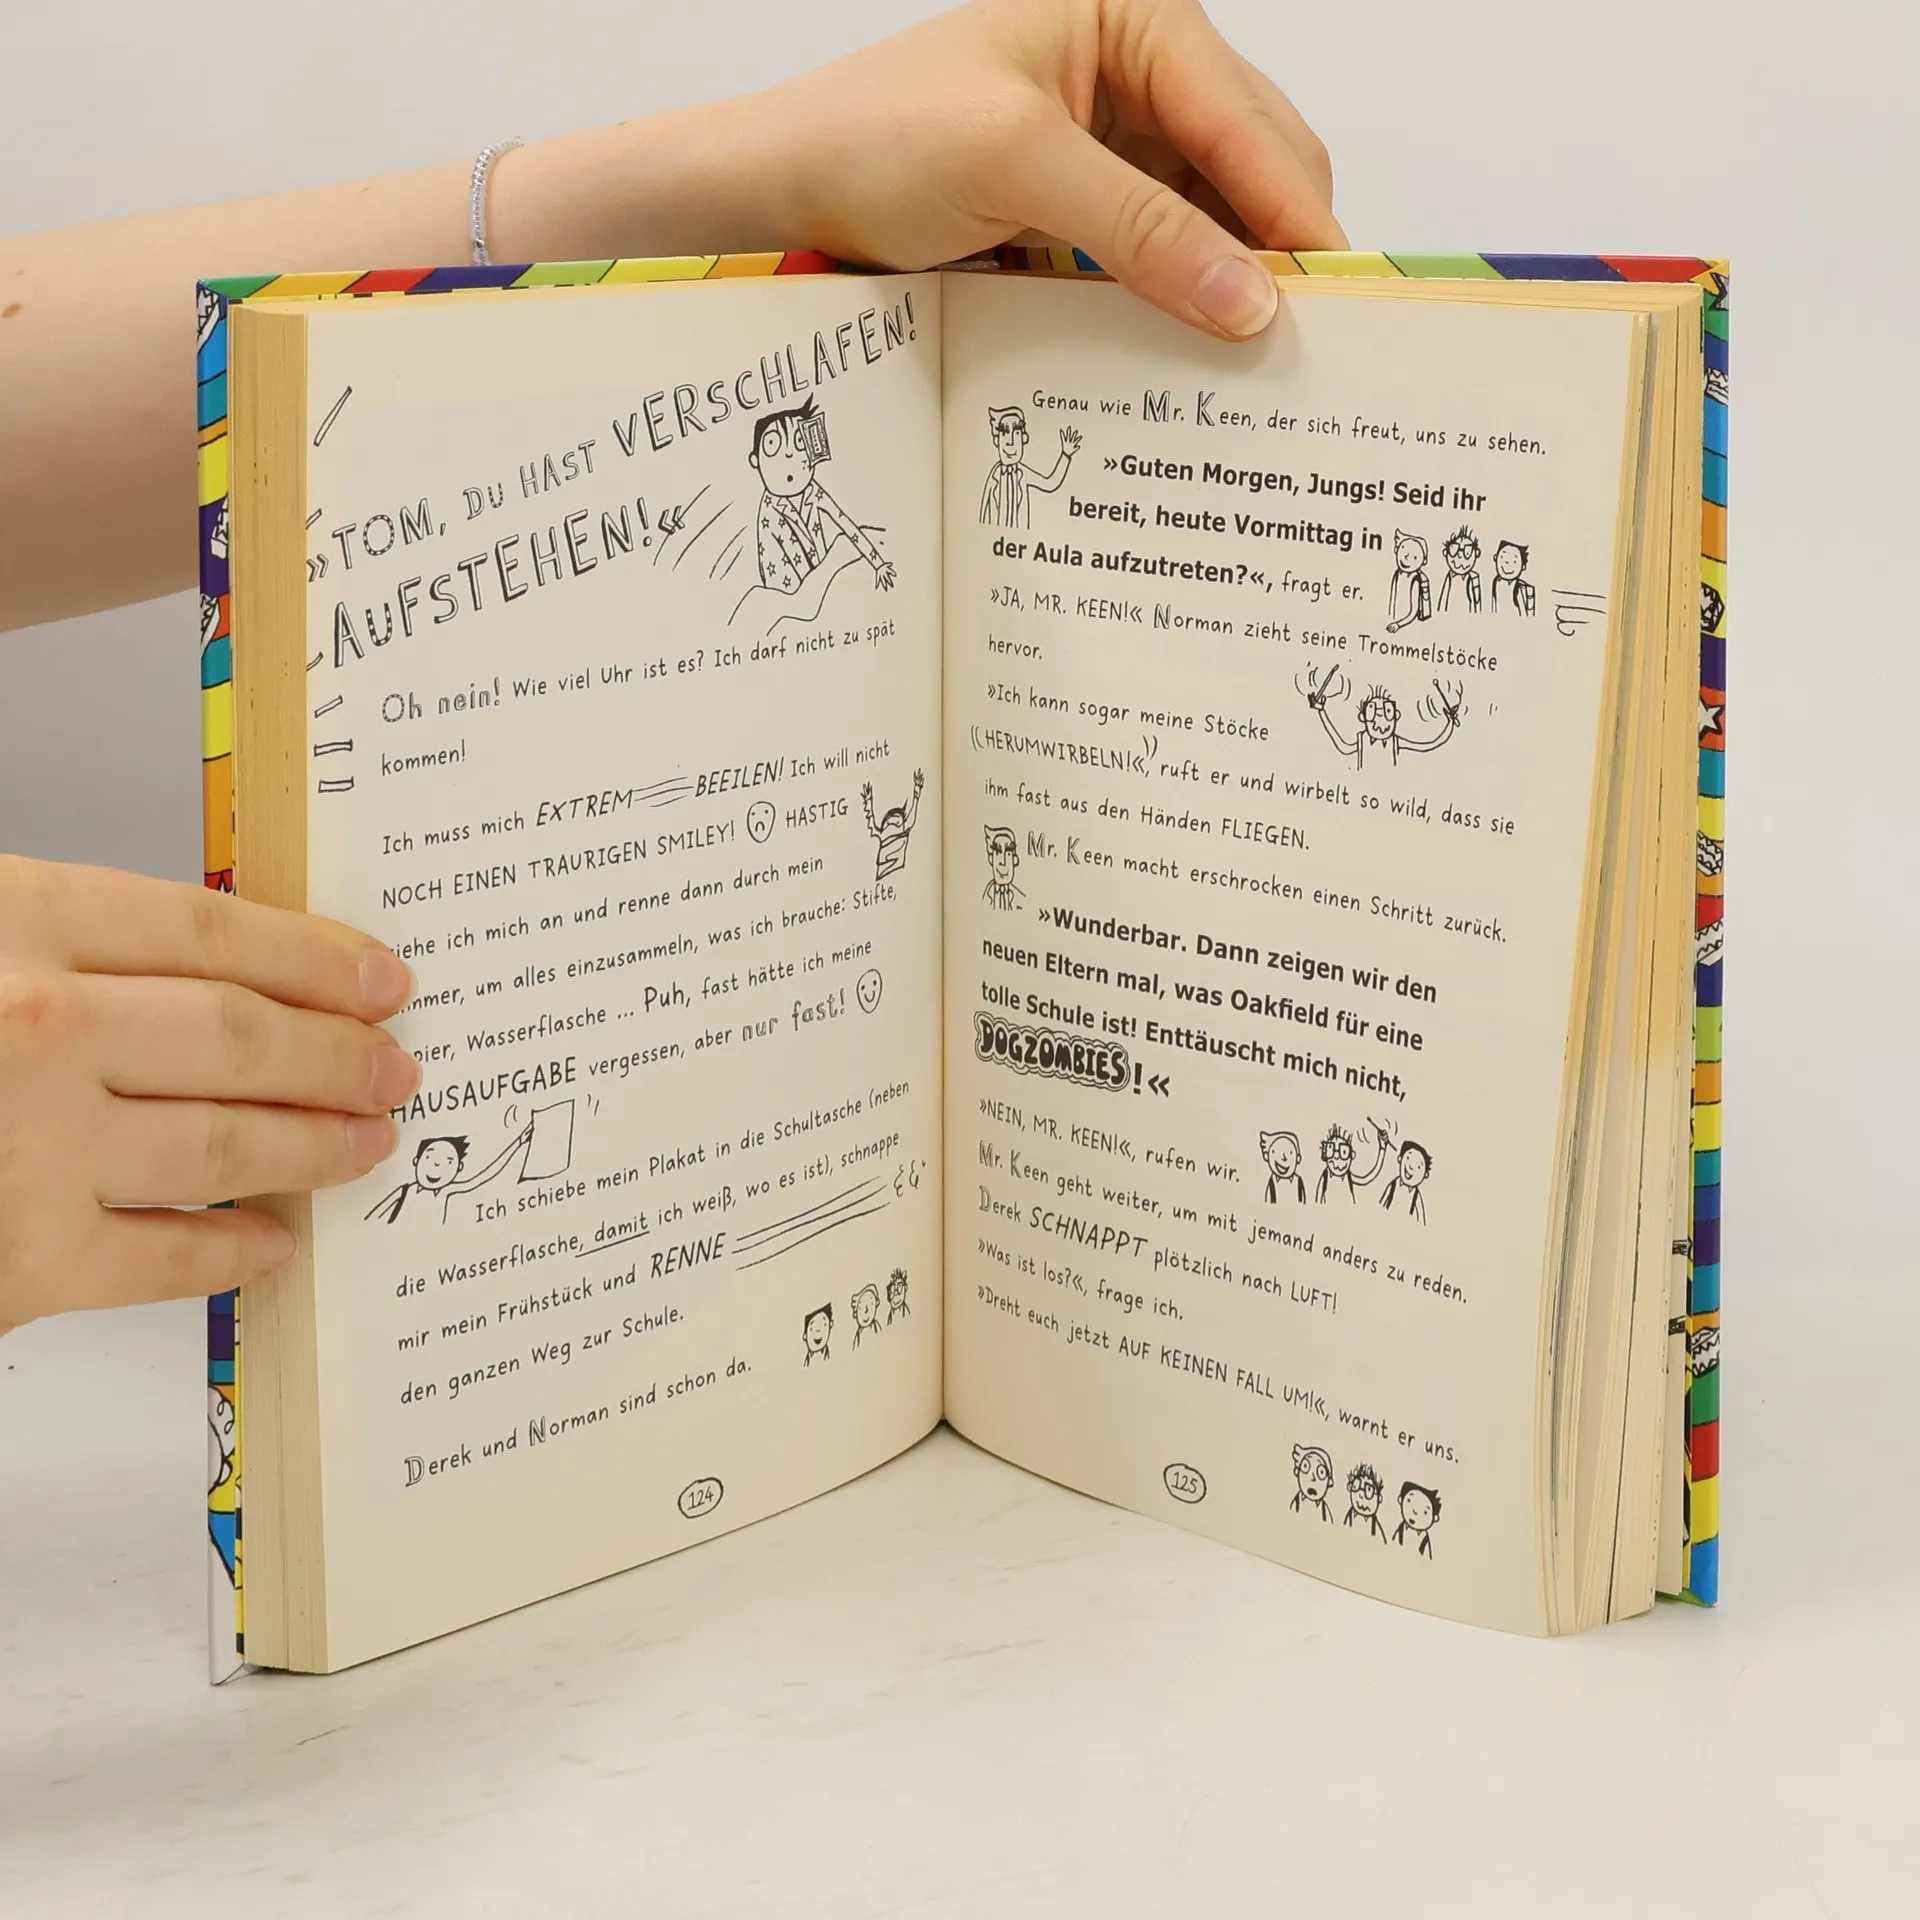 »TOM, DU HAST VERSCHLAFEN!
AUFSTEHEN!«
Oh nein! Wie viel Uhr ist es? Ich darf nicht zu spät
kommen!
Ich muss mich EXTREM BEEILEN! Ich will nicht
NOCH EINEN TRAURIGEN SMILEY! HASTIG
ziehe ich mich an und renne dann durch mein
um alles einzusammeln, was ich brauche: Stifte,
Wasserflasche ... Puh, fast hätte ich meine
HAUSAUFGABE vergessen, aber nur fast!
Ich schiebe mein Plakat in die Schultasche (neben
die Wasserflasche, damit ich weiß, wo es ist), schnappe
mir mein Frühstück und RENNE
den ganzen Weg zur Schule.
Derek und Norman sind schon da.
124
Genau wie Mr. Keen, der sich freut, uns zu sehen.
»Guten Morgen, Jungs! Seid ihr
bereit, heute Vormittag in
der Aula aufzutreten?«, fragt er.
»JA, MR. KEEN!« Norman zieht seine Trommelstöcke
hervor.
»Ich kann sogar meine Stöcke
HERUMWIRBELN!«, ruft er und wirbelt so wild, dass sie
ihm fast aus den Händen FLIEGEN.
Mr. Keen macht erschrocken einen Schritt zurück.
»Wunderbar. Dann zeigen wir den
neuen Eltern mal, was Oakfield für eine
tolle Schule ist! Enttäuscht mich nicht,
DOGZOMBIES!«
»NEIN, MR. KEEN!«, rufen wir.
Mr. Keen geht weiter, um mit jemand anders zu reden.
Derek SCHNAPPT plötzlich nach LUFT!
»Was ist los?«, frage ich.
»Dreht euch jetzt AUF KEINEN FALL UM!«, warnt er uns.
125